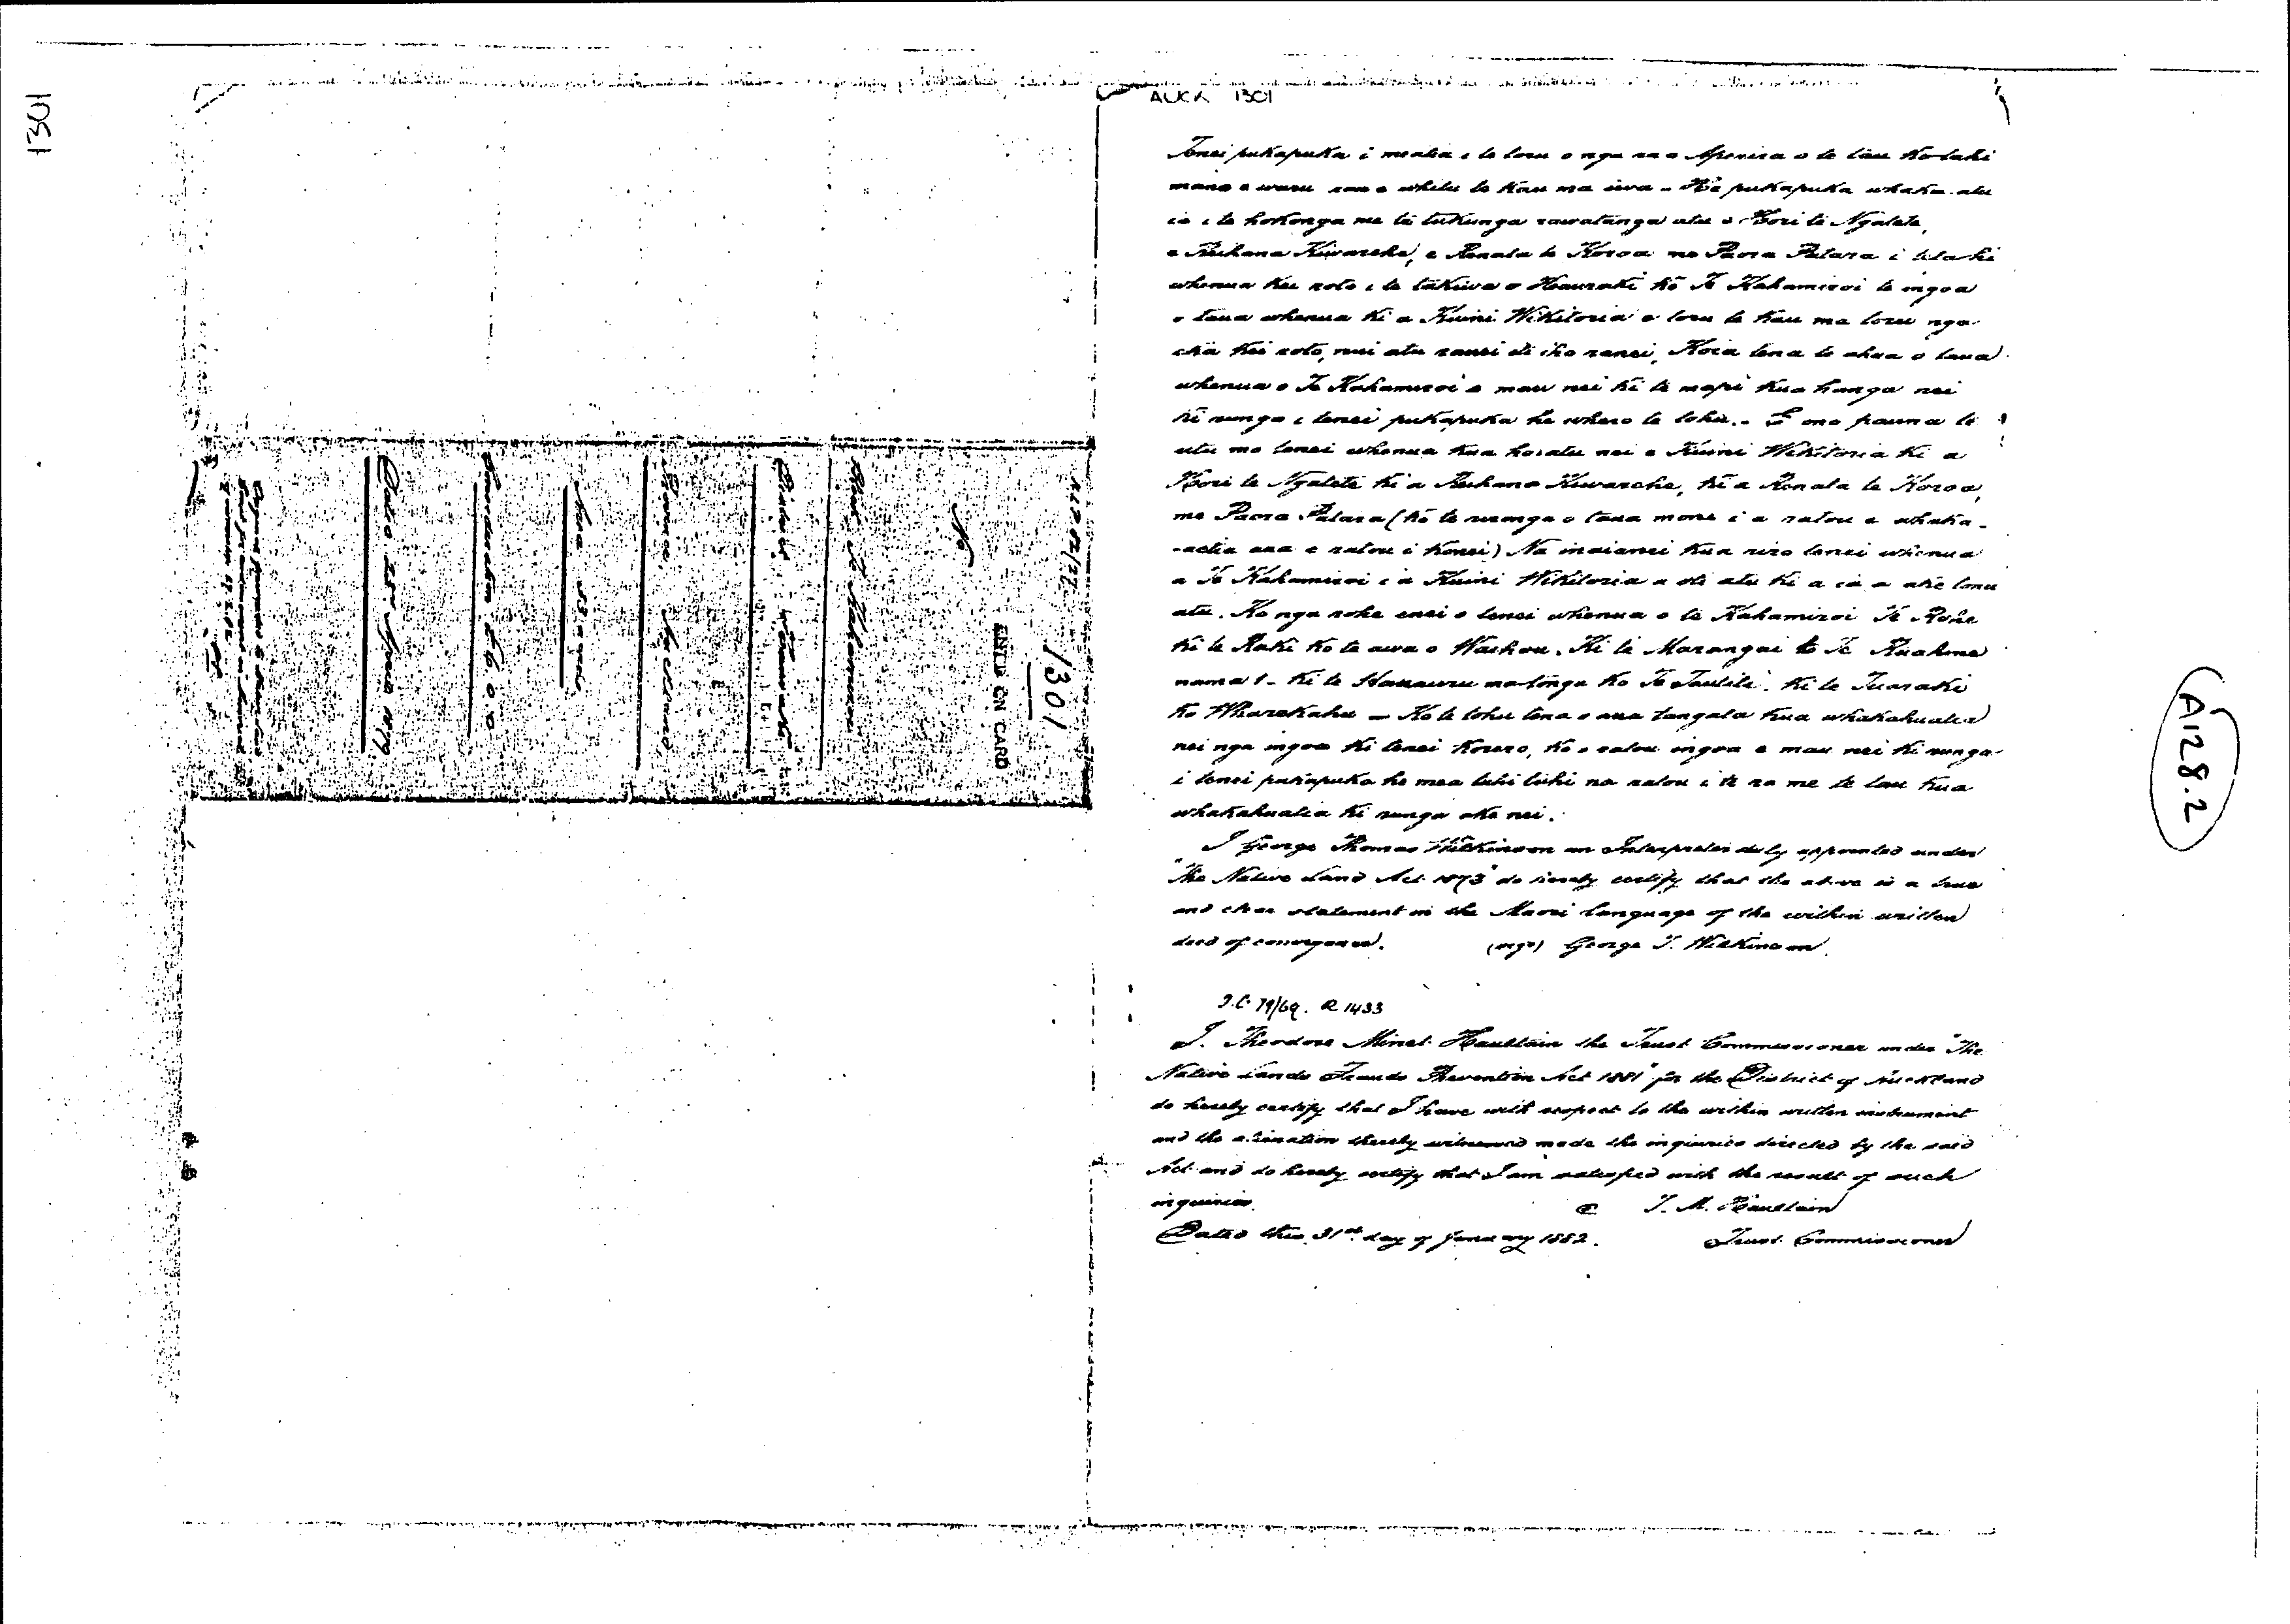 1301
AUCK 1301
Tenei pukapuka i meatia i te toru o nga ra o Aperira o te tau kotahi
mano e waru rau e whitu te kau ma iwa - He pukapuka whaka-atu
ia i te hokonga me te tukunga rawatanga atu e Hori te Ngatete,
e Reihana Kiwarehe, e Renata te Koroa me Paora Patara i tetahi
whenua kei roto i te takiwa o Hauraki ko Te Kahamiroi te ingoa
o taua whenua ki a Kuini Wikitoria e toru te kau ma toru nga
eka kei roto, nui atu ranei iti iho ranei, Koia tena te ahua o taua
whenua o Te Kahamiroi e mau nei ki te mapi kua hanga nei
ki runga i tenei pukapuka he whero te tohu. - E ono pauna te
utu mo tenei whenua kua hoatu nei e Kuini Wikitoria ki a
Hori te Ngatete ki a Reihana Kiwarehe, ki a Renata te Koroa,
me Paora Patara (ko te riranga o taua mone i a ratou e whaka-
-aetia ana e ratou i konei) Na inaianei kua riro tenei whenua
a Te Kahamiroi i a Kuini Wikitoria a oti atu ki a ia a ake tonu
atu. Ko nga rohe enei o tenei whenua o te Kahamiroi Te Rohe
ki te Raki ko te awa o Waihou. Ki te Marangai ko Te Ruahine
nama 1 - Ki te Hauauru ma-tonga ko Te Tautiti. Ki te Tuaraki
ko Wharekahu - Ko te tohu tena o aua tangata kua whakahuatia
nei nga ingoa ki tenei korero, ko o ratou ingoa e mau nei ki runga
i tenei pukapuka he mea tuhi tuhi na ratou i te ra me te tau kua
whakahuatia ki runga ake nei.
I George Thomas Wilkinson an Interpreter duly appointed under
"The Native Land Act 1873" do hereby certify that the above is a true
and clear statement in the Maori language of the within written
deed of conveyance. (sgd) George T. Wilkinson.
T.C. 79/69. R 1433
I. Theodore Minet Haultain the Trust Commissioner under "The
Native Lands Frauds Prevention Act 1881" for the District of Auckland
do hereby certify that I have with respect to the within written instrument
and the alienation thereby witnessed made the inquiries directed by the said
Act and do hereby certify that I am satisfied with the result of such
inquiries. T. M. Haultain
Dated this 31st day of January 1882. Trust Commissioner
A128.2
1301
ENTD ON CARD
No
Block Te Kahamiroi
District
Area 33 acres
Consideration £6.0.0
Dated 1879